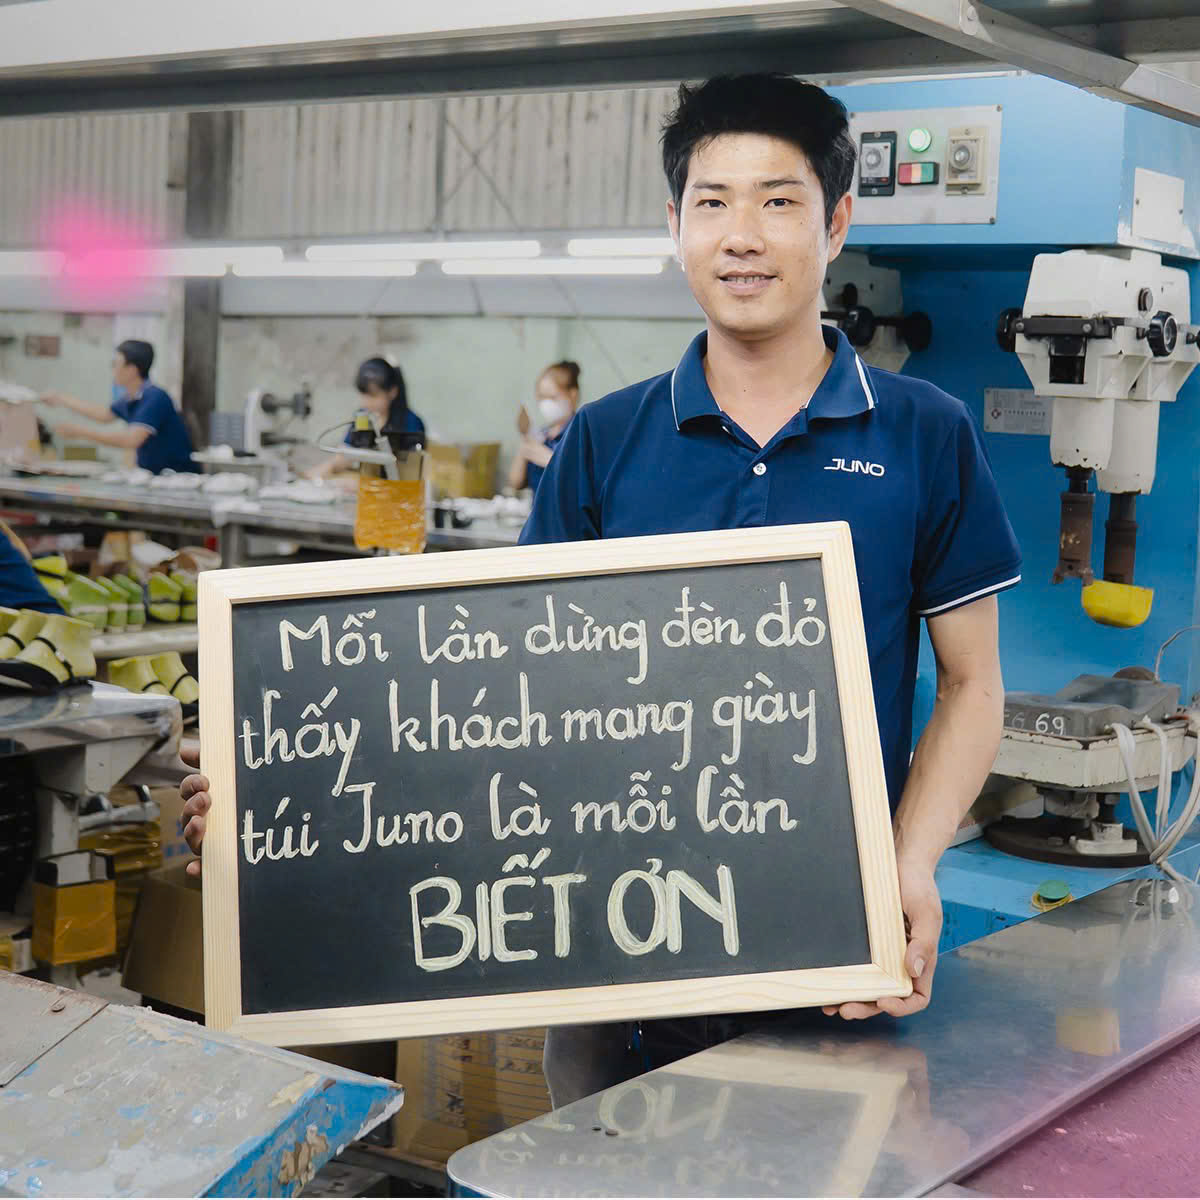 JUNO
Mỗi lần dừng đèn đỏ
thấy khách mang giày
túi Juno là mỗi lần
BIẾT ƠN
69